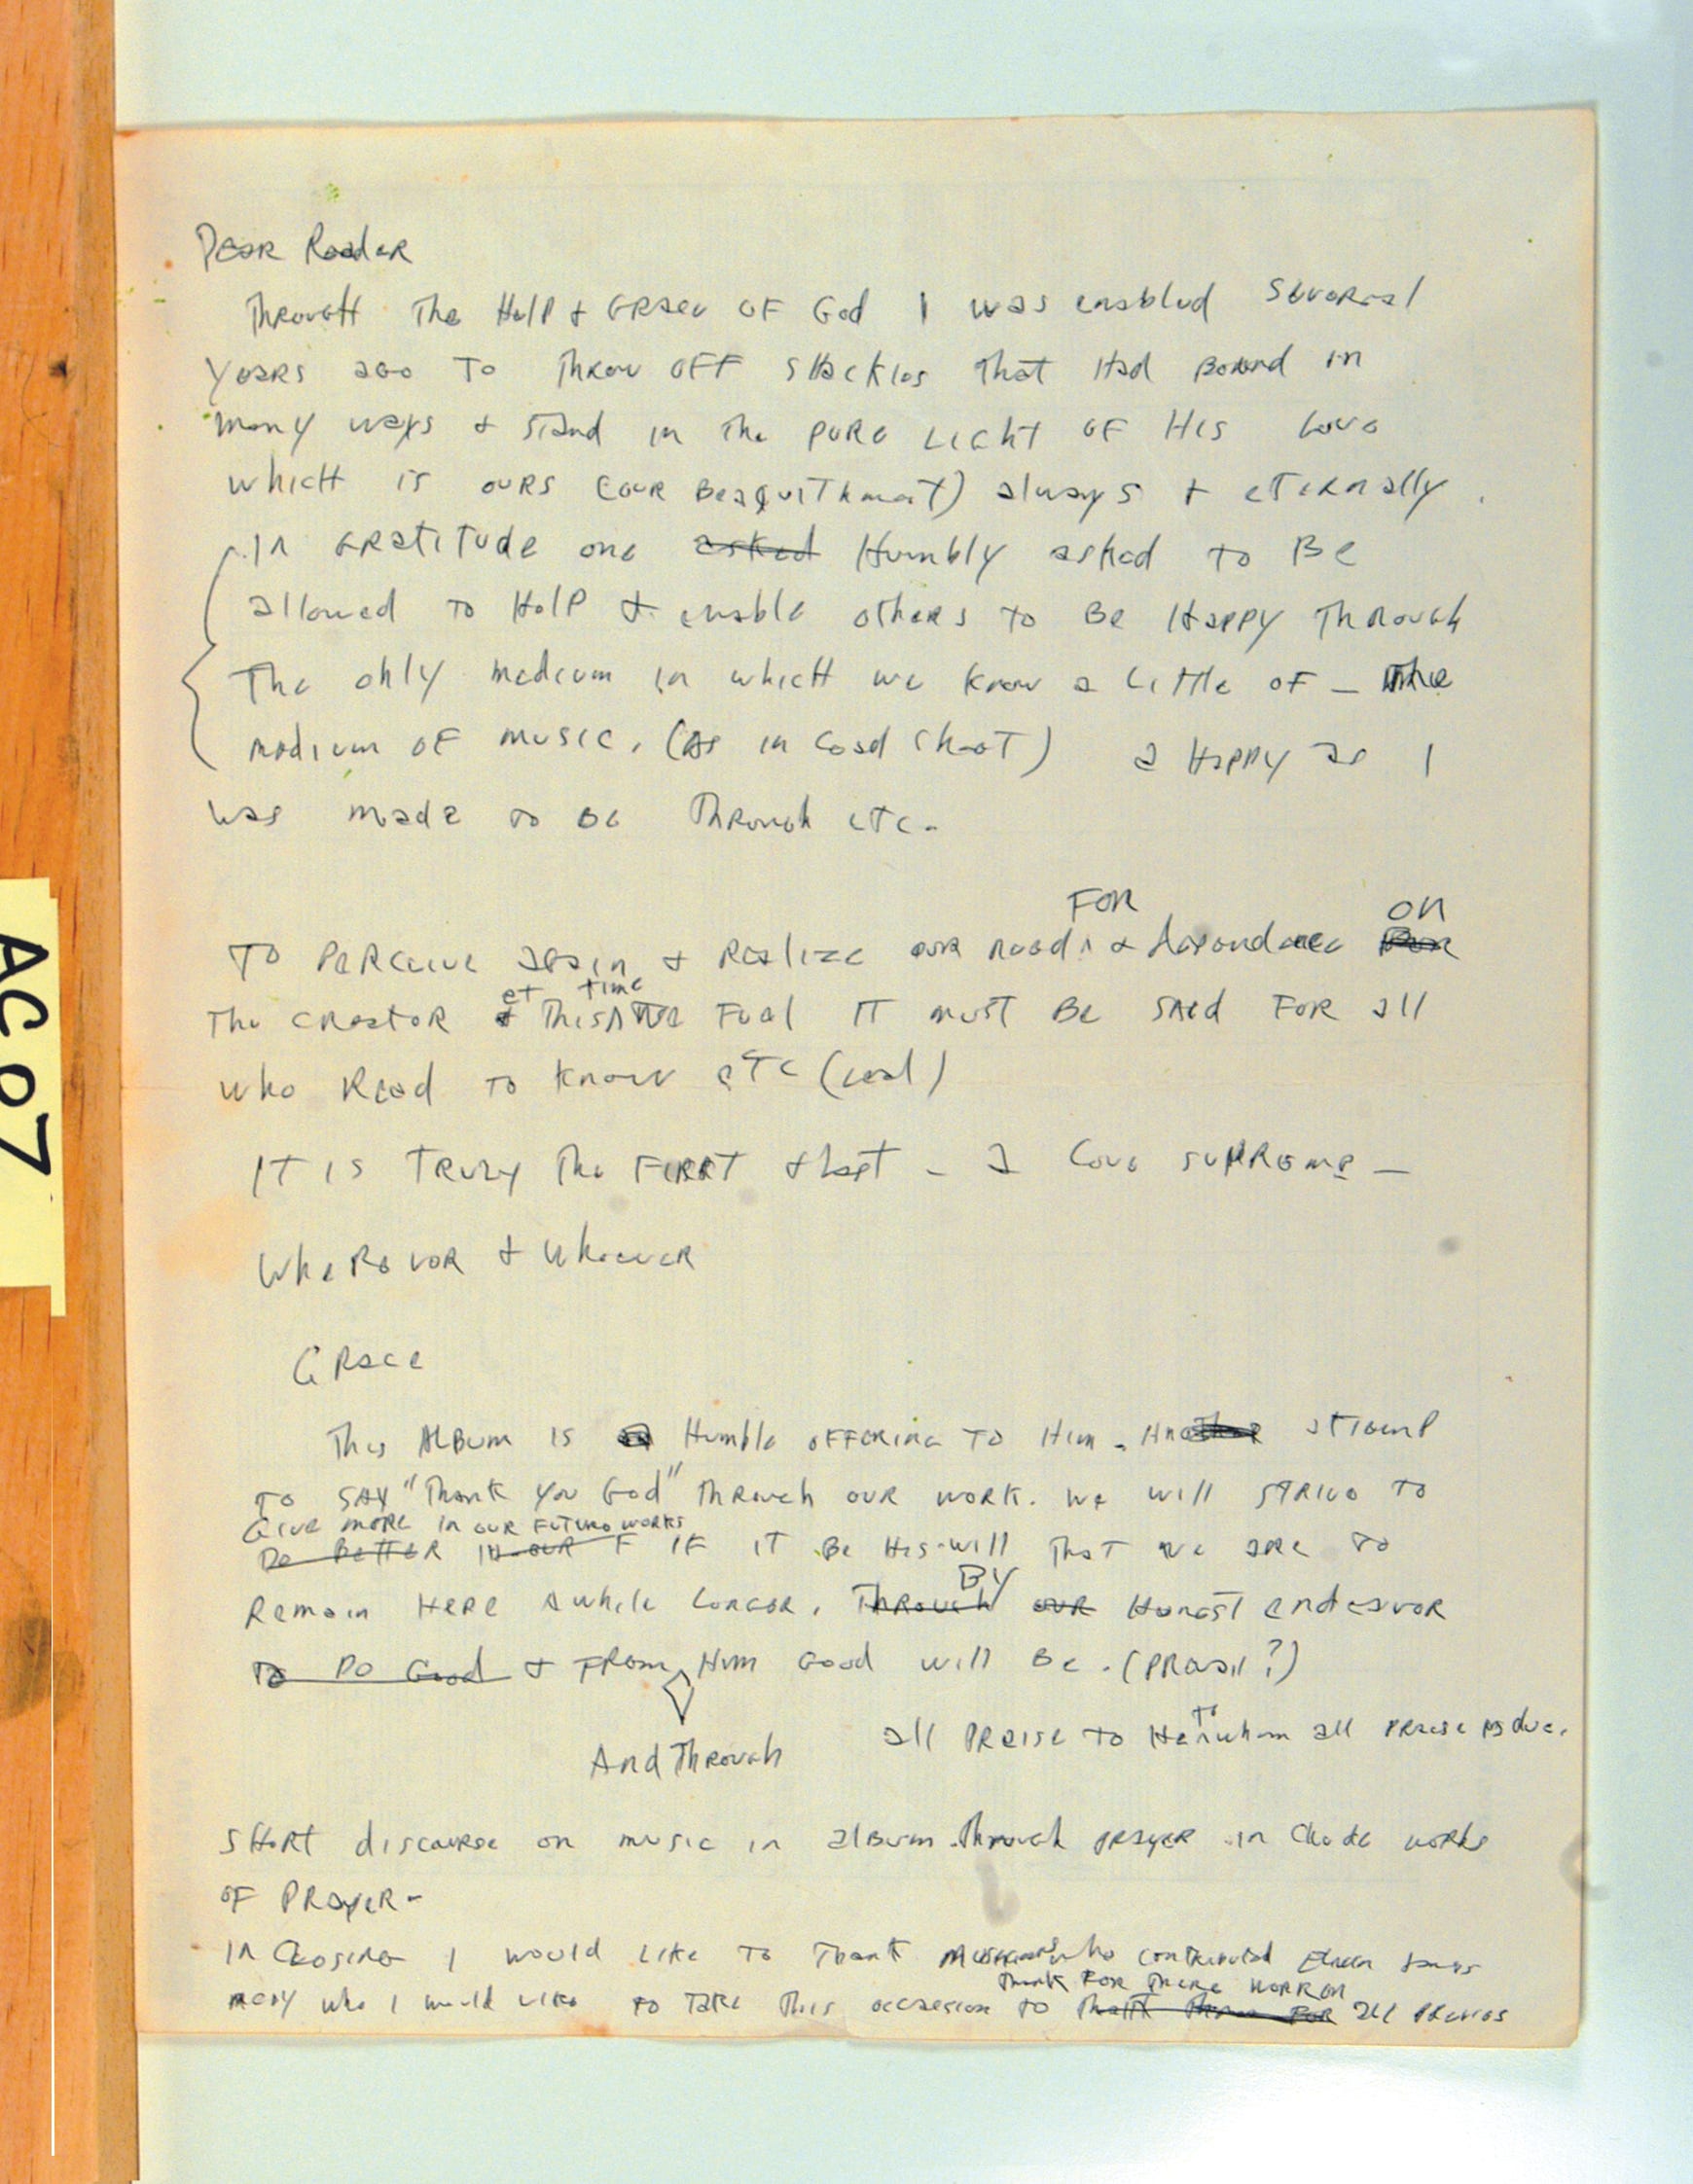 Dear Reader
Through The Help & Grace of God I was enabled several
years ago to throw off shackles that Had Bound in
many ways & stand in the pure Light of His Love
which is ours (our ) always & eternally.
In Gratitude one asked Humbly asked to Be
allowed to Help & enable others to Be Happy Through
The only medium in which we know a Little of — The
medium of music. (As in Good ) a Happy as I
was made to be Through etc.
FOR on
To Perceive again & Realize our need & dependence
at time
The Creator & This we Feel It must Be said For all
who Read to know etc
It is Truly The First & Last — a Love supreme —
Wherever & Whoever
Grace
This Album is a Humble offering to Him. attempt
To say "Thank You God" Through our work. We will strive to
Give more in our Future works
Do Better in our F IF it Be His will That we are to
By
Remain Here awhile Longer. Through our Honest endeavor
To Do Good & From Him Good will Be.
And Through
to
all Praise to He whom all Praise is due.
Short discourse on music in album Through prayer in works
of Prayer-
In Closing I would Like to Thank musicians who contributed
Thank For There work on
many who I would Like to Take This occasion to all
AC 07